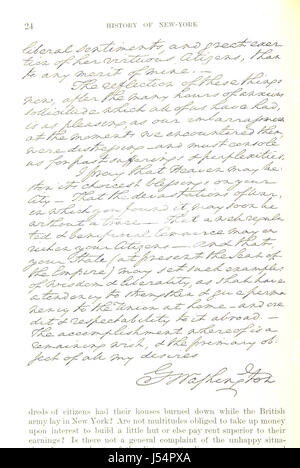 24 HISTORY OF NEW-YORK
liberal sentiments, and great exer-
tion of her virtuous Citizens, than
to any merit of mine. —
The reflection of these things
now, after the many hours of anxious
sollicitude which all of us have had,
is as pleasing, as our embarrassments
at the moments we encountered them,
were distressing — and must console
us for past sufferings & perplexities.
I pray that Heaven may be-
stow its choicest blessings on your
City — That the devastations of War,
in which you found it, may soon be
without a trace — That a well regula-
ted & beneficial Commerce may en-
richen your Citizens — And that,
your State (at present the Seat of
the Empire) may set such examples
of wisdom & liberality, as shall have
a tendency to strengthen & give perma-
nency to the Union at home — and cre-
dit & respectability to it abroad. —
The accomplishment whereof is a
remaining wish, & the primary ob-
ject of all my desires
G Washington
dreds of citizens had their houses burned down while the British
army lay in New York? Are not multitudes obliged to take up money
upon interest to build a little hut or else pay rent superior to their
earnings? Is there not a general complaint of the unhappy situa-
alamy
Image ID: J54PXA
www.alamy.com